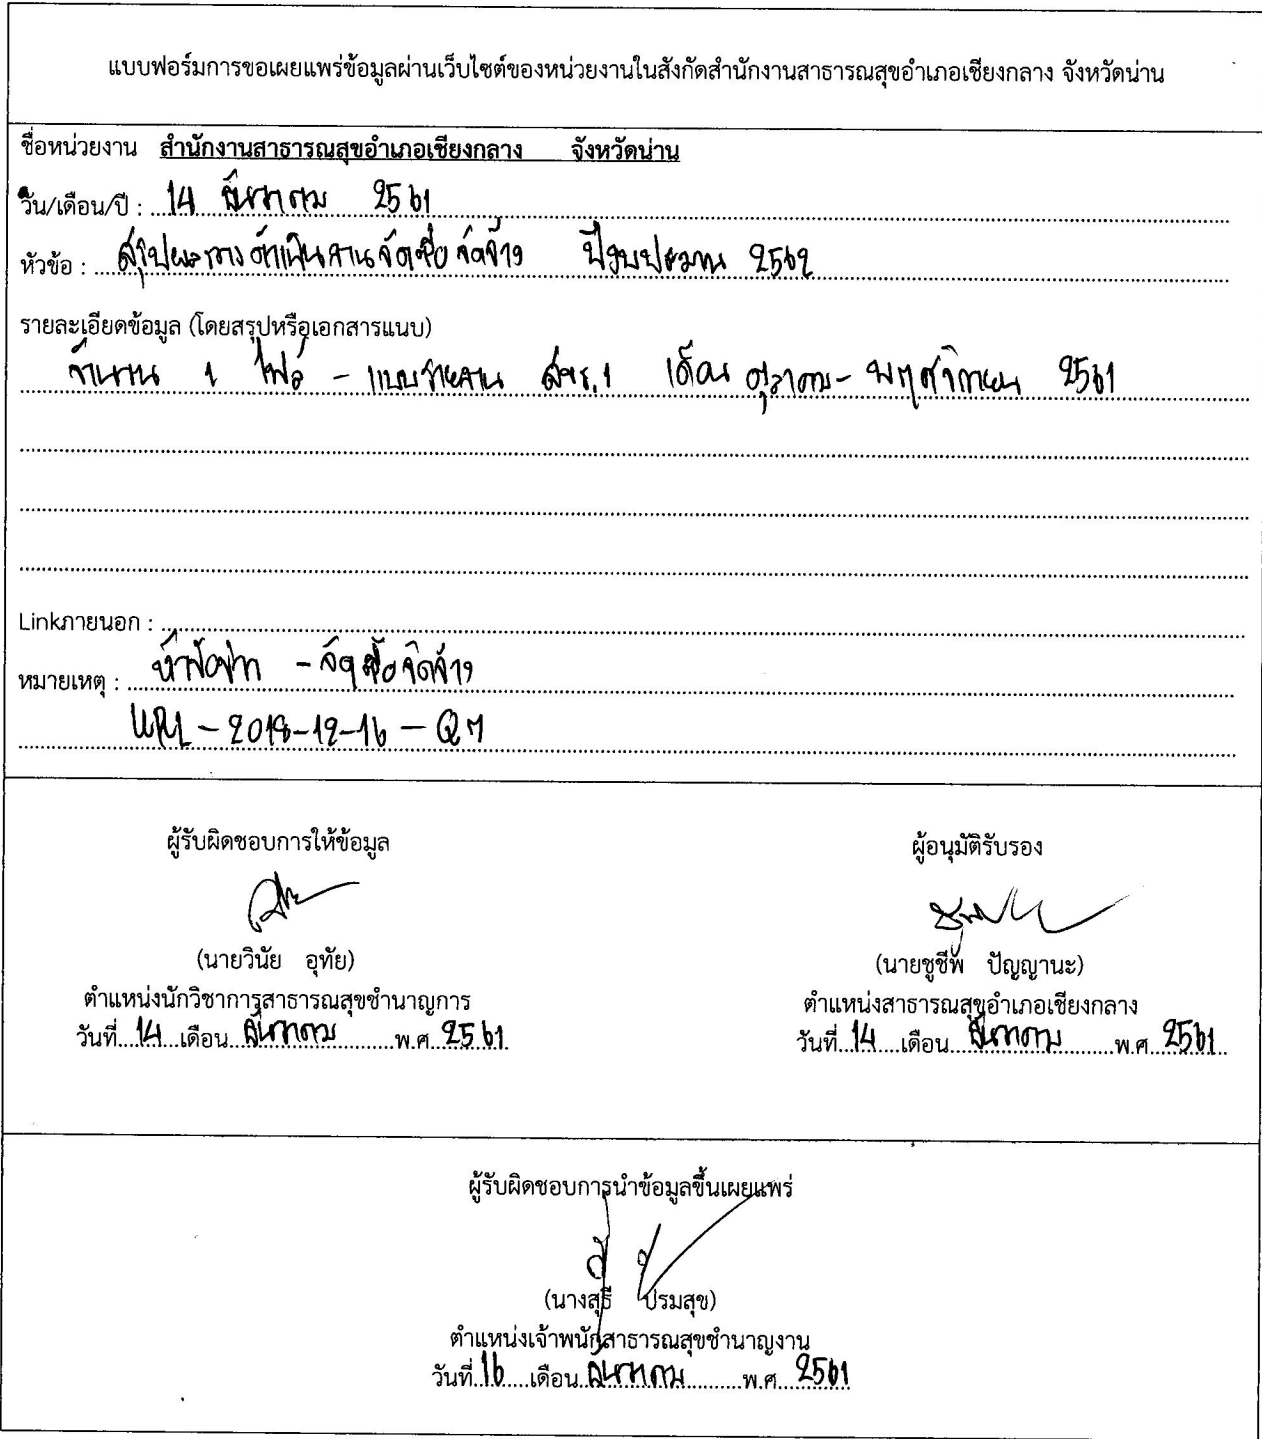 แบบฟอร์มการขอเผยแพร่ข้อมูลผ่านเว็บไซต์ของหน่วยงานในสังกัดสำนักงานสาธารณสุขอำเภอเชียงกลาง จังหวัดน่าน
ชื่อหน่วยงาน สำนักงานสาธารณสุขอำเภอเชียงกลาง จังหวัดน่าน
วัน/เดือน/ปี : 14 ธันวาคม 2561
หัวข้อ : สรุปผลการดำเนินงานจัดซื้อจัดจ้าง ปีงบประมาณ 2562
รายละเอียดข้อมูล (โดยสรุปหรือเอกสารแนบ)
จำนวน 1 ไฟล์ - แบบรายงาน สขร.1 เดือน ตุลาคม - พฤศจิกายน 2561
Linkภายนอก :
หมายเหตุ : หัวข้อข่าว - จัดซื้อจัดจ้าง
URL - 2018-12-16 -
ผู้รับผิดชอบการให้ข้อมูล
(นายวินัย อุทัย)
ตำแหน่งนักวิชาการสาธารณสุขชำนาญการ
วันที่ 14 เดือน ธันวาคม พ.ศ. 2561
ผู้อนุมัติรับรอง
(นายชูชีพ ปัญญานะ)
ตำแหน่งสาธารณสุขอำเภอเชียงกลาง
วันที่ 14 เดือน ธันวาคม พ.ศ. 2561
ผู้รับผิดชอบการนำข้อมูลขึ้นเผยแพร่
(นางสุธี ปรมสุข)
ตำแหน่งเจ้าพนักสาธารณสุขชำนาญงาน
วันที่ 16 เดือน ธันวาคม พ.ศ. 2561